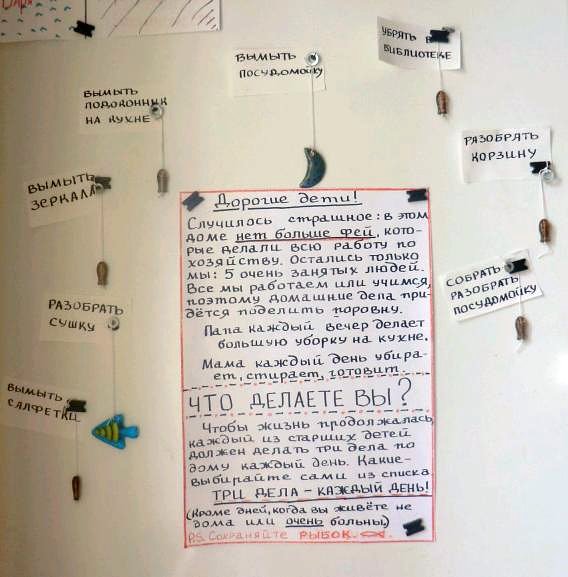 ВЫМЫТЬ
ПОСУДОМОЙКУ
УБРАТЬ В
БИБЛИОТЕКЕ
ВЫМЫТЬ
ПОДОКОННИК
НА КУХНЕ
РАЗОБРАТЬ
КОРЗИНУ
ВЫМЫТЬ
ЗЕРКАЛА
СОБРАТЬ-
РАЗОБРАТЬ
ПОСУДОМОЙКУ
РАЗОБРАТЬ
СУШКУ
ВЫМЫТЬ
САЛФЕТКИ
Дорогие дети!
Случилось страшное: в этом
доме нет больше фей, кото-
рые делали всю работу по
хозяйству. Остались только
мы: 5 очень занятых людей.
Все мы работаем или учимся,
поэтому домашние дела при-
дётся поделить поровну.
Папа каждый вечер делает
большую уборку на кухне.
Мама каждый день убира-
ет, стирает, готовит.
ЧТО ДЕЛАЕТЕ ВЫ?
Чтобы жизнь продолжалась,
каждый из старших детей
должен делать три дела по
дому каждый день. Какие-
выбирайте сами из списка.
ТРИ ДЕЛА - КАЖДЫЙ ДЕНЬ!
(Кроме дней, когда вы живёте не
дома или очень больны.)
P.S. Сохраняйте РЫБОК.